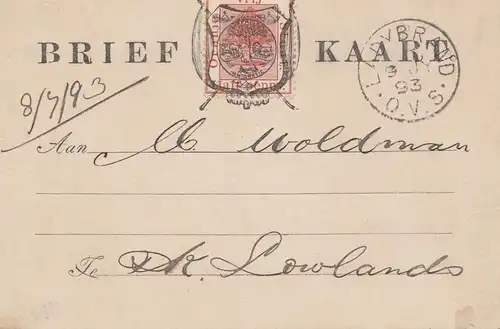 VRIJ
BRIEF KAART
LUYBRAND
93
O.V.S.
8/7/93
Aan M. Woldman
Te Dk. Lowlands